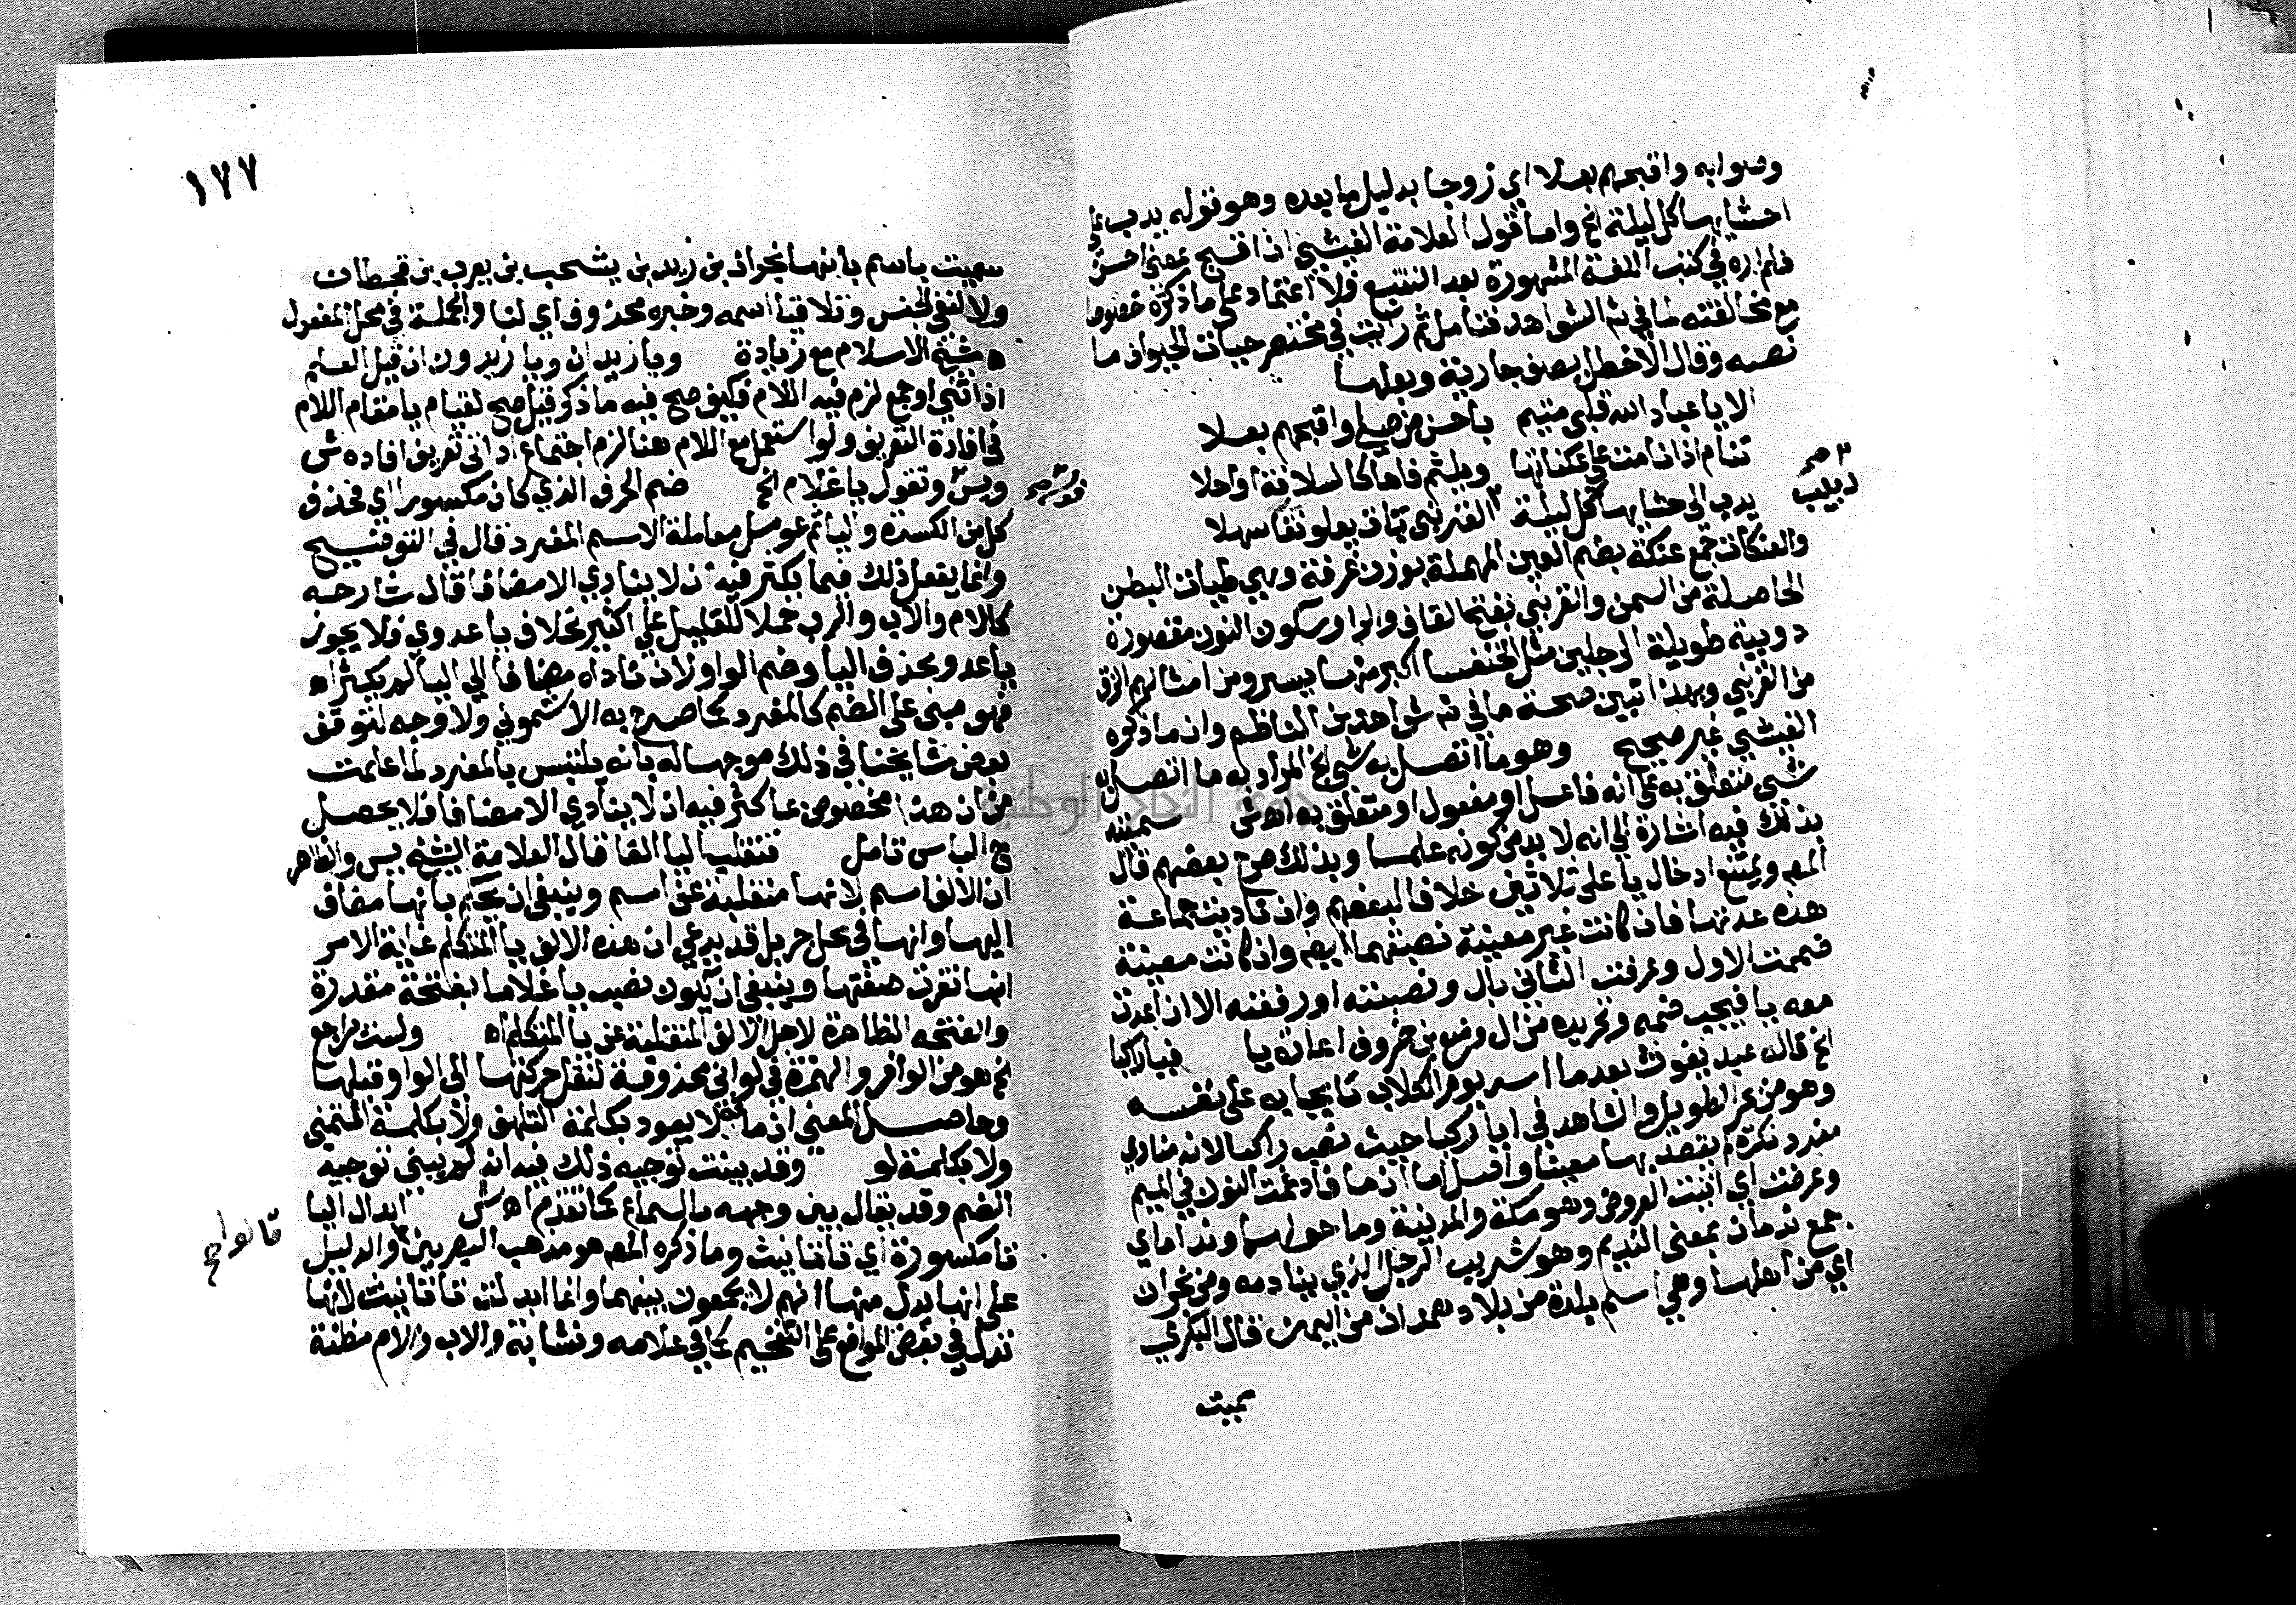 وصوابه واقبحهم بعلا اي زوجا بدليل ما بعده وهو قوله يدب على
احشايها كل ليلة الخ واما قول العلامة الفيشي ان اقبح بمعنى احسن
فلم اره في كتب اللغة المشهورة بعد التتبع فلا اعتماد على ما ذكره خصوصا
مع مخالفته لما في شر الشواهد فتامل ثم رايت في مختصر حياة الحيوان ما
نصه وقال الاخطل يصف جارية وبعلها
الا يا عباد الله قلبي متيم باحسن من صلى واقبحهم بعلا
تنام اذا نامت على عكناتها ويلثم فاها كالسلافة او احلا
يدب الى احشايها كل ليلة القرنبى بات يعلو نقا سهلا
٣ صح
دبيب
والعكنات جمع عنكة بضم العين المهملة بوزن غرفة وهي طيات البطن
الحاصلة من السمن والقرنبى بفتح القاف والرا وسكون النون مقصورة
دويبة طويلة الرجلين مثل الخنفسا اكبر منها بيسير ومن امثالهم الزق
من القرنبي وبهذا تبين صحة ما في شر شواهد بن الناظم وان ما ذكره
الفيشي غير صحيح وهو ما اتصل به شي الخ المراد به ما اتصل به
شي متعلق به على انه فاعل او مفعول او متعلق به اهش سميته
بذلك فيه اشارة الى انه لا بد من كونه علما وبذلك صرح بعضهم قال
المص ويمتنع ادخال يا على ثلاثين خلافا لبعضهم وان ناديت جماعة
هذه عدتها فان كانت غير معينة نصبتهما ايضا وان كانت معينة
ضممت الاول وعرفت الثاني بال ونصبته او رفعته الا ان اعدت
معه يا فيجب ضمه وتجريده من ال ومنع بن خروف اعادة يا فيا راكبا
الخ قاله عبد يغوث بعدما اسر يوم الكلاب نايحا به على نفسه
وهو من بحر الطويل والشاهد في ايا راكبا حيث نصب راكبا لانه منادي
مفرد نكرة لم يقصد بها معينا واصل اما ان ما فادغمت النون في الميم
وعرضت اي اتيت العروض وهو مكة والمدينة وما حولهما وندا ماي
جمع ندمان بمعنى النديم وهو شريب الرجل الذي ينادمه ومن نجران
اي من اهلها وهي اسم بلدة من بلاد همدان من اليمن قال البكري
سميت
١٧٧
سميت باسم بانيها نجران بن زيد بن يشحب بن يعرب بن قحطان
ولا لنفي الجنس وتلاقيا اسمه وخبره محذوف اي لنا والجملة في محل المفعول
اه شيخ الاسلام مع زيادة ويا زيدان ويا زيدون ان قيل العلم
اذا ثني او جمع لزم فيه اللام فكيف صح فيه ما ذكر قيل صح لقيام يا مقام اللام
في افادة التعريف ولو استعمل مع اللام هنا لزم اجتماع اداتي تعريف افاده ش
ويس وتقول يا غلام الخ ضم الحرف الذي كان مكسورا اي فحذف
كل من الكسرة واليا ثم عومل معاملة الاسم المفرد قال في التوضيح
وانما يفعل ذلك فيما يكثر فيه ان لا ينادي الا مضافا قال شارحه
كالام والاب والرب حملا للقليل على الكثير بخلاف يا عدوي فلا يجوز
يا عدو بحذف اليا وضم الواو لان نداه مضافا الى اليا لم يكثر اه
فهو مبني على الضم كالمفرد كما صرح به الاشموني ولا وجه لتوقف
بعض مشايخنا في ذلك موجها له بانه يلتبس بالمفرد لما علمت
من ان هذا مخصوص بما كثر فيه ان لا ينادي الا مضافا فلا يحصل
ح الباس تامل فتقلب اليا الفا قال العلامة الشيخ يس والظاهر
ان الالف اسم لانها منقلبة عن اسم وينبغي ان يحكم بانها مضاف
اليها وانها في محل جر بل قد يدعي ان هذه الالف يا المتكلم غاية الامر
انها تغيرت صفتها وينبغي ان يكون نصب يا غلاما بفتحة مقدرة
والفتحة الظاهرة لاجل الالف المنقلبة عن يا المتكلم اه ولست براجع
الخ هو من الوافر والهمزة في لو اني محذوفة لنقل حركتها الى الواو قبلها
وحاصل المعنى ان ما فات لا يعود بكلمة التلهف ولا بكلمة التمني
ولا بكلمة لو وقد بينت توجيه ذلك فيه انه لم يبين توجيه
الضم وقد يقال بين وجهه بالسماع كما تقدم اهش ابدال اليا
تا مكسورة اي تا تانيث وما ذكره المص هو مذهب البصريين والدليل
قالوا صح
على انها بدل منها انهم لا يجمعون بينهما وانما ابدلت تا تانيث لانها
تدل في بعض المواضع على التفخيم كما في علامه ونسابة والاب والام مظنة